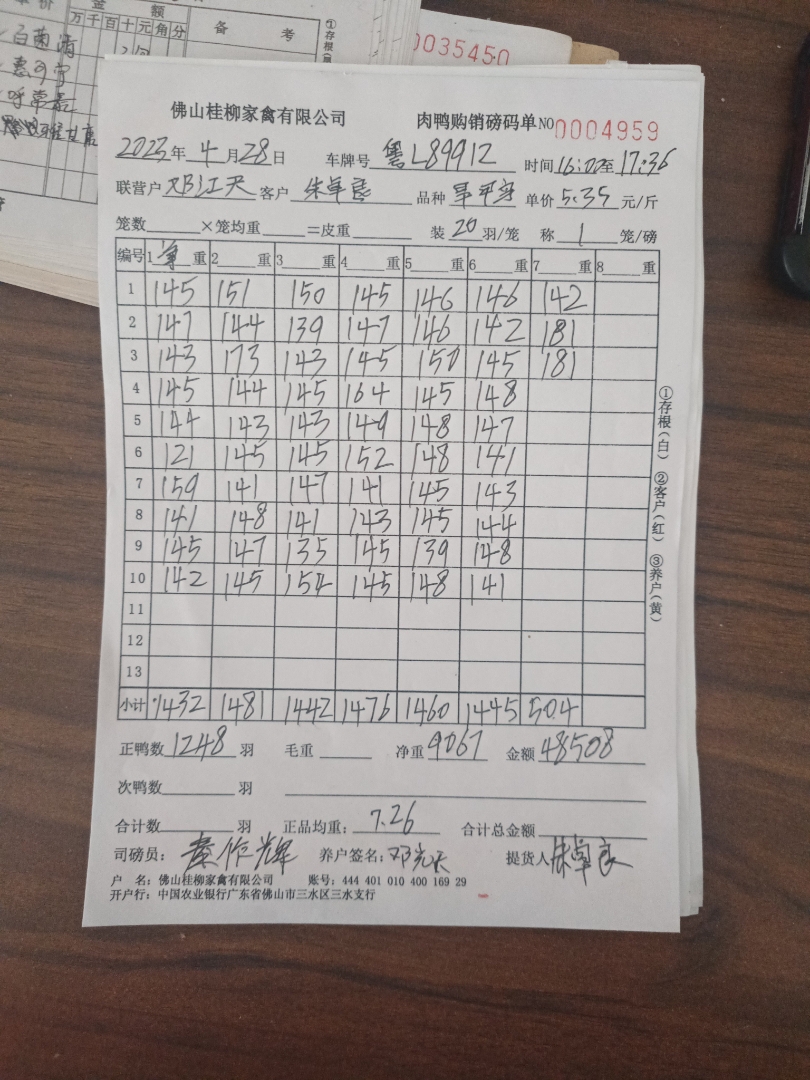 单价 金额 备考
万千百十元角分
①存根
0035450
佛山桂柳家禽有限公司 肉鸭购销磅码单 NO 0004959
2023年4月28日 车牌号 粤L89912 时间16:00至17:36
联营户 邓江天 客户 朱卓良 品种 单价 5.35 元/斤
笼数 ×笼均重 =皮重 装 20 羽/笼 称 1 笼/磅
编号 1 净 重 2 重 3 重 4 重 5 重 6 重 7 重 8 重
1 145 151 150 145 146 146 142
2 147 144 139 147 146 142 181
3 143 173 143 145 150 145 181
4 145 144 145 164 145 148
5 144 143 143 149 148 147
6 121 145 145 152 148 141
7 159 141 147 141 145 143
8 141 148 141 143 145 144
9 145 147 135 145 139 148
10 142 145 154 145 148 141
11
12
13
小计 1432 1481 1442 1476 1460 1445 504
①存根(白) ②客户(红) ③养户(黄)
正鸭数 1248 羽 毛重 净重 9067 金额 48508
次鸭数 羽
合计数 羽 正品均重: 7.26 合计总金额
司磅员: 秦作辉 养户签名: 提货人 朱卓良
户 名: 佛山桂柳家禽有限公司 账号: 444 401 010 400 169 29
开户行: 中国农业银行广东省佛山市三水区三水支行